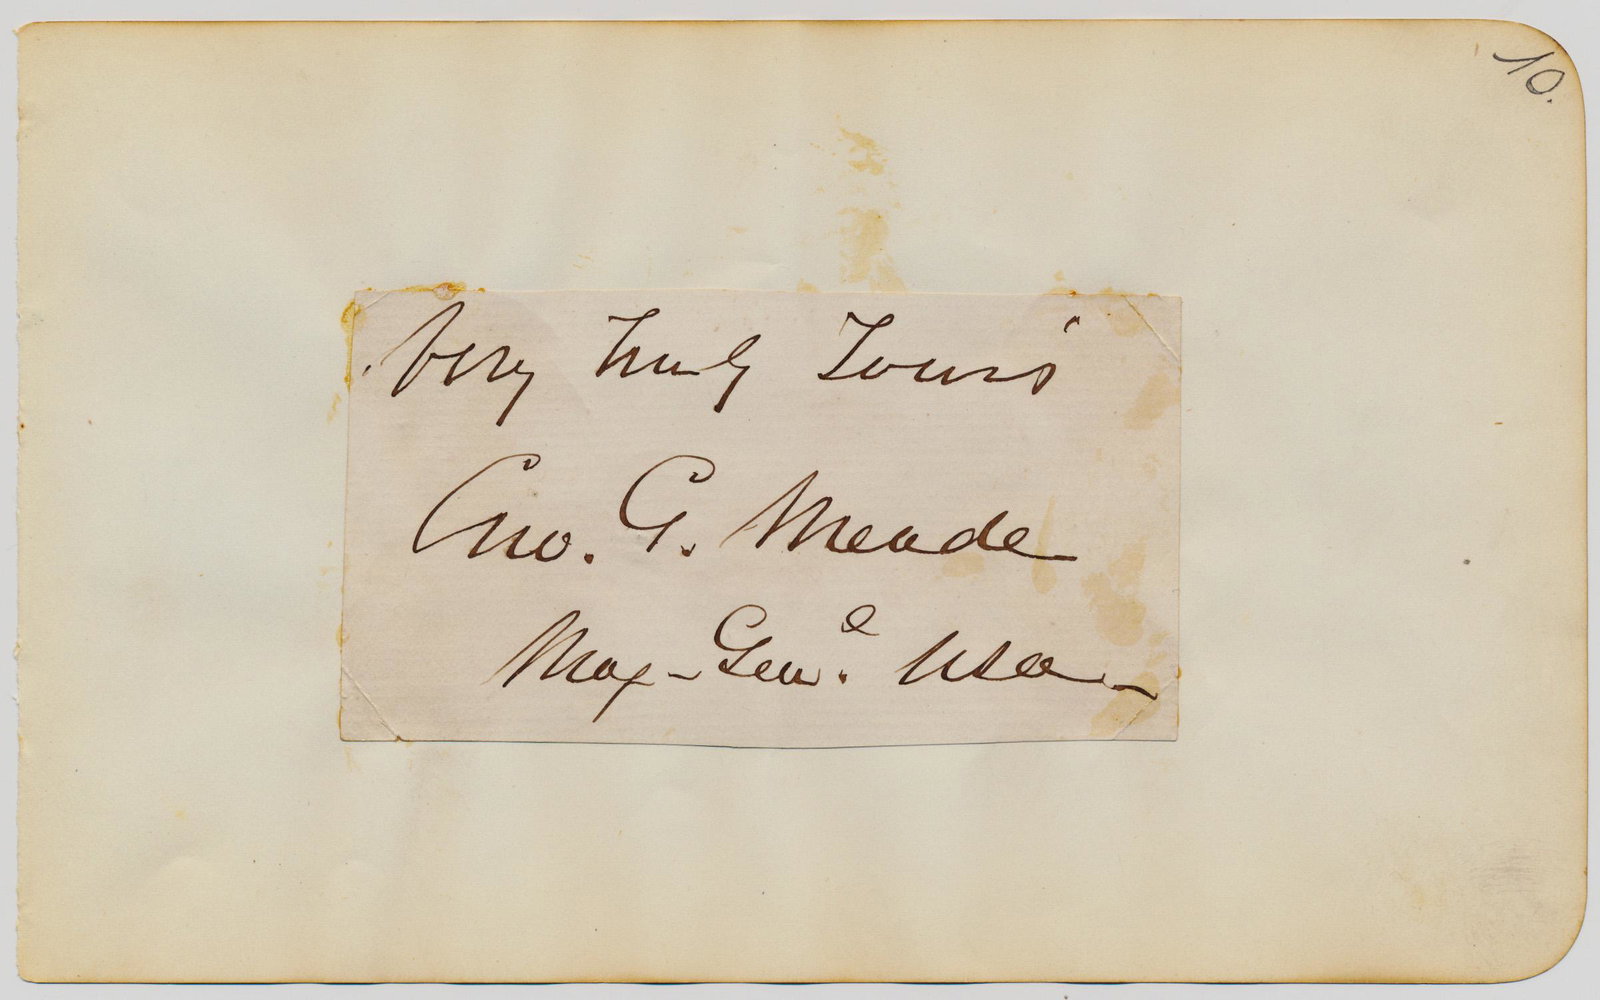 10.
Very truly Yours
Geo. G. Meade
Maj-Genl. USA